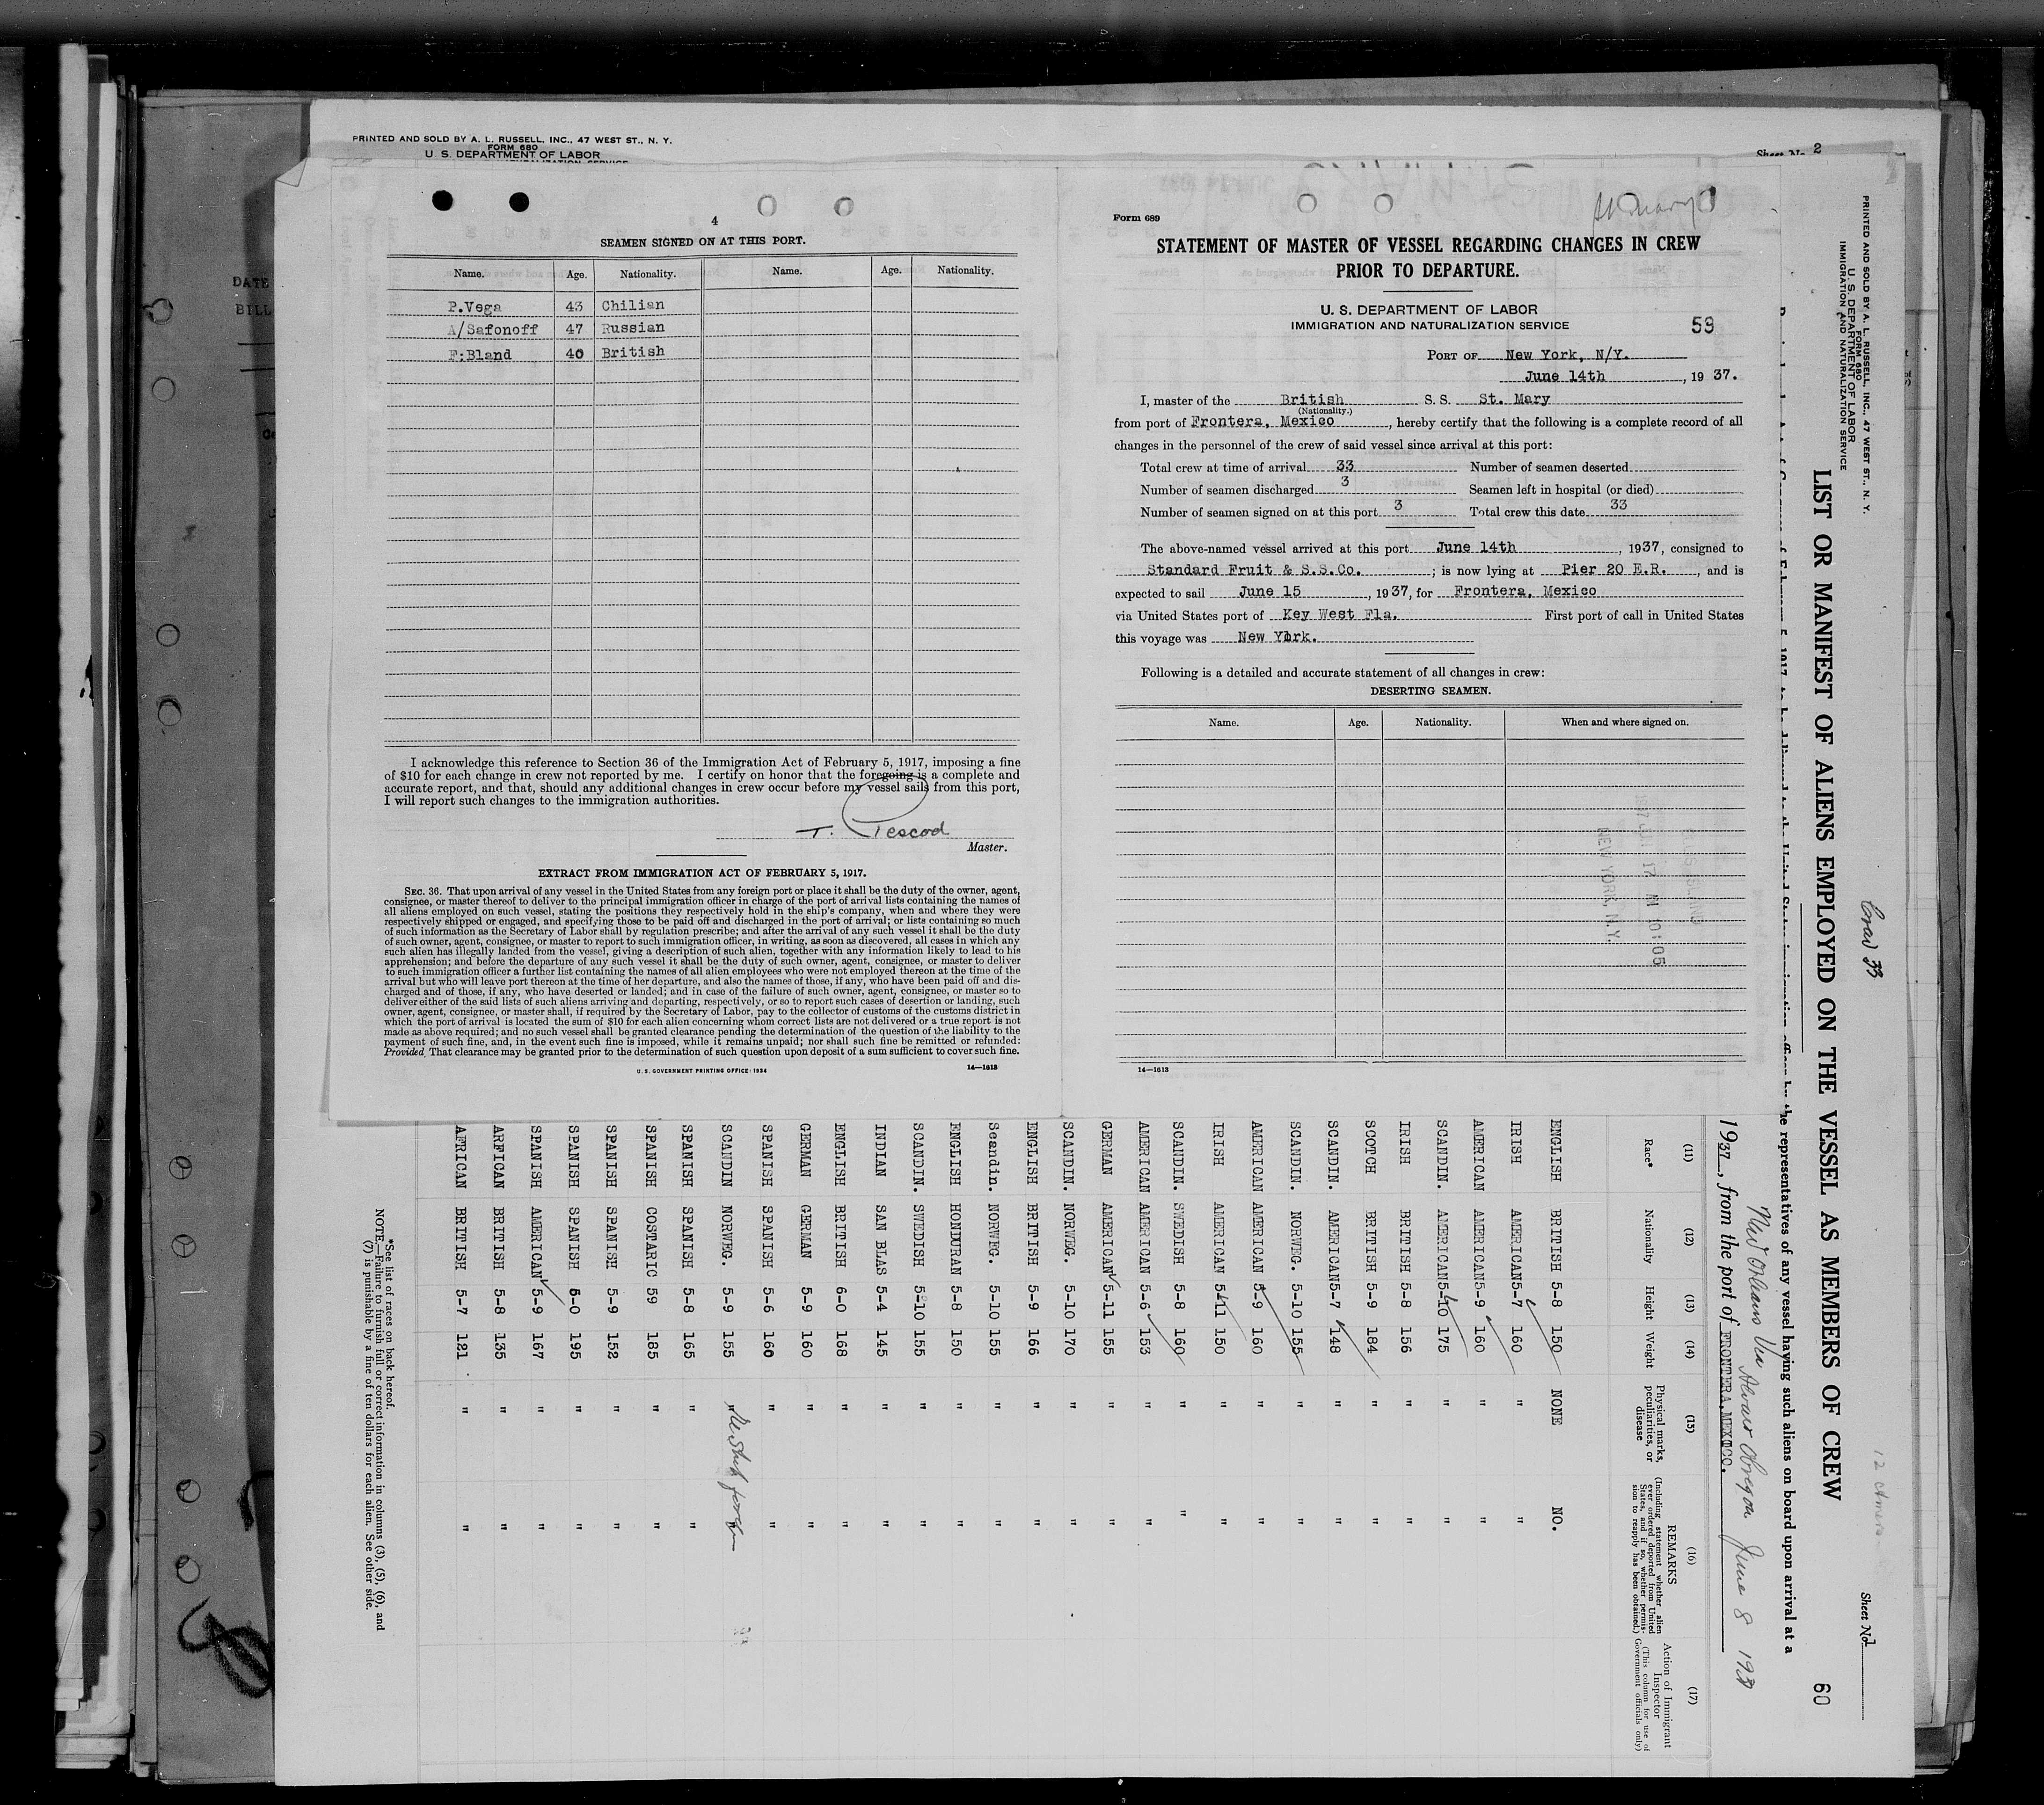 PRINTED AND SOLD BY A. L. RUSSELL, INC., 47 WEST ST., N. Y.
FORM 680
U. S. DEPARTMENT OF LABOR
Sheet No. 2
DATE
BILL
4
SEAMEN SIGNED ON AT THIS PORT.
Name. Age. Nationality. Name. Age. Nationality.
P.Vega 43 Chilian
A/Safonoff 47 Russian
F:Bland 40 British
I acknowledge this reference to Section 36 of the Immigration Act of February 5, 1917, imposing a fine
of $10 for each change in crew not reported by me. I certify on honor that the foregoing is a complete and
accurate report, and that, should any additional changes in crew occur before my vessel sails from this port,
I will report such changes to the immigration authorities.
T.
Master.
EXTRACT FROM IMMIGRATION ACT OF FEBRUARY 5, 1917.
SEC. 36. That upon arrival of any vessel in the United States from any foreign port or place it shall be the duty of the owner, agent,
consignee, or master thereof to deliver to the principal immigration officer in charge of the port of arrival lists containing the names of
all aliens employed on such vessel, stating the positions they respectively hold in the ship's company, when and where they were
respectively shipped or engaged, and specifying those to be paid off and discharged in the port of arrival; or lists containing so much
of such information as the Secretary of Labor shall by regulation prescribe; and after the arrival of any such vessel it shall be the duty
of such owner, agent, consignee, or master to report to such immigration officer, in writing, as soon as discovered, all cases in which any
such alien has illegally landed from the vessel, giving a description of such alien, together with any information likely to lead to his
apprehension; and before the departure of any such vessel it shall be the duty of such owner, agent, consignee, or master to deliver
to such immigration officer a further list containing the names of all alien employees who were not employed thereon at the time of the
arrival but who will leave port thereon at the time of her departure, and also the names of those, if any, who have been paid off and dis-
charged and of those, if any, who have deserted or landed; and in case of the failure of such owner, agent, consignee, or master so to
deliver either of the said lists of such aliens arriving and departing, respectively, or so to report such cases of desertion or landing, such
owner, agent, consignee, or master shall, if required by the Secretary of Labor, pay to the collector of customs of the customs district in
which the port of arrival is located the sum of $10 for each alien concerning whom correct lists are not delivered or a true report is not
made as above required; and no such vessel shall be granted clearance pending the determination of the question of the liability to the
payment of such fine, and, in the event such fine is imposed, while it remains unpaid; nor shall such fine be remitted or refunded:
Provided, That clearance may be granted prior to the determination of such question upon deposit of a sum sufficient to cover such fine.
U. S. GOVERNMENT PRINTING OFFICE: 1934 14—1613
St Mary
Form 689
STATEMENT OF MASTER OF VESSEL REGARDING CHANGES IN CREW
PRIOR TO DEPARTURE.
U. S. DEPARTMENT OF LABOR
IMMIGRATION AND NATURALIZATION SERVICE
59
PORT OF New York, N/Y.
June 14th, 1937.
I, master of the British S. S. St. Mary
(Nationality.)
from port of Frontera, Mexico, hereby certify that the following is a complete record of all
changes in the personnel of the crew of said vessel since arrival at this port:
Total crew at time of arrival 33 Number of seamen deserted
Number of seamen discharged 3 Seamen left in hospital (or died)
Number of seamen signed on at this port 3 Total crew this date 33
The above-named vessel arrived at this port June 14th, 1937, consigned to
Standard Fruit & S.S.Co.; is now lying at Pier 20 E.R., and is
expected to sail June 15, 1937, for Frontera, Mexico
via United States port of Key West Fla. First port of call in United States
this voyage was New York.
Following is a detailed and accurate statement of all changes in crew:
DESERTING SEAMEN.
Name. Age. Nationality. When and where signed on.
17 AM 10:05
NEW YORK, N.Y.
14—1613
PRINTED AND SOLD BY A. L. RUSSELL, INC., 47 WEST ST., N. Y.
FORM 680
U. S. DEPARTMENT OF LABOR
IMMIGRATION AND NATURALIZATION SERVICE
Crew 33
Sheet No. 1
LIST OR MANIFEST OF ALIENS EMPLOYED ON THE VESSEL AS MEMBERS OF CREW
60
the representatives of any vessel having such aliens on board upon arrival at a
New Orleans Via Alvaro Obregon June 8 1937
1937, from the port of FRONTERA, MEXICO.
(11) (12) (13) (14) (15) (16) (17)
Race* Nationality Height Weight Physical marks, peculiarities, or disease REMARKS (Including statement whether alien ever ordered deported from United States, and if so, whether permission to reapply has been obtained.) Action of Immigrant Inspector (This column for use of Government officials only)
ENGLISH BRITISH 5-8 150 NONE NO.
IRISH AMERICAN 5-7 160 " "
AMERICAN AMERICAN 5-9 160 " "
SCANDIN. AMERICAN 5-10 175 " "
IRISH BRITISH 5-8 156 " "
SCOTCH BRITISH 5-9 184 " "
SCANDIN. AMERICAN 5-7 148 " "
SCANDIN. NORWEG. 5-10 155 " "
AMERICAN AMERICAN 5-9 160 " "
IRISH AMERICAN 5-11 150 " "
SCANDIN. SWEDISH 5-8 160 " "
AMERICAN AMERICAN 5-6 153 " "
GERMAN AMERICAN 5-11 185 " "
SCANDIN. NORWEG. 5-10 170 " "
ENGLISH BRITISH 5-9 166 " "
Scandin. NORWEG. 5-10 155 " "
ENGLISH HONDURAN 5-8 150 " "
SCANDIN. SWEDISH 5-10 155 " "
INDIAN SAN BLAS 5-4 145 " "
ENGLISH BRITISH 6-0 168 " "
GERMAN GERMAN 5-9 160 " "
SPANISH SPANISH 5-6 160 " "
SCANDIN NORWEG. 5-9 155 " "
SPANISH SPANISH 5-8 165 " "
SPANISH COSTARIC 59 185 " "
SPANISH SPANISH 5-9 152 " "
SPANISH SPANISH 6-0 195 " "
SPANISH AMERICAN 5-9 167 " "
ARFICAN BRITISH 5-8 135 " "
AFRICAN BRITISH 5-7 121 " "
*See list of races on back hereof.
NOTE.—Failure to furnish full or correct information in columns (3), (5), (6), and
(7) is punishable by a fine of ten dollars for each alien. See other side.